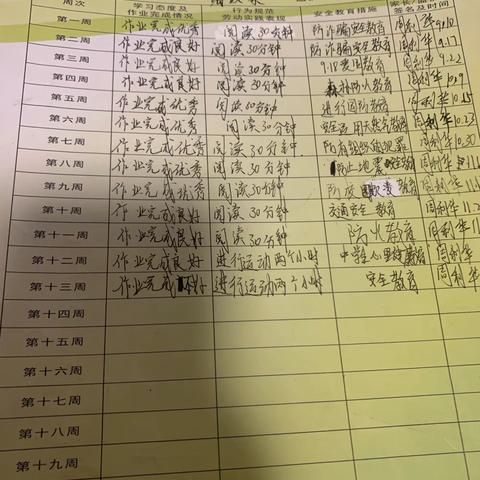 周次 学习态度及作业完成情况 行为规范劳动实践表现 安全教育措施 签名及时间
第一周 作业完成优秀 阅读30分钟 防诈骗安全教育 周利华 9.10
第二周 作业完成良好 阅读30分钟 防诈骗安全教育 周利华 9.17
第三周 作业完成良好 阅读30分钟 9.18爱国教育 周利华 9.22
第四周 作业完成良好 阅读30分钟 森林防火教育 周利华 10.9
第五周 作业完成优秀 阅读30分钟 进行国防教育 周利华 10.15
第六周 作业完成优秀 阅读30分钟 安全使用天然气教育 周利华 10.23
第七周 作业完成优秀 阅读30分钟 周利华 10.30
第八周 作业完成优秀 阅读30分钟 防止地震 教育 周利华
第九周 作业完成优秀 阅读30分钟 教育 周利华
第十周 作业完成良好 阅读30分钟 交通安全教育 周利华
第十一周 作业完成良好 阅读30分钟 防火教育 周利华
第十二周 作业完成良好 进行运动两个小时 教育 周利华
第十三周 作业完成 好 进行运动两个小时 安全教育 周利华
第十四周
第十五周
第十六周
第十七周
第十八周
第十九周